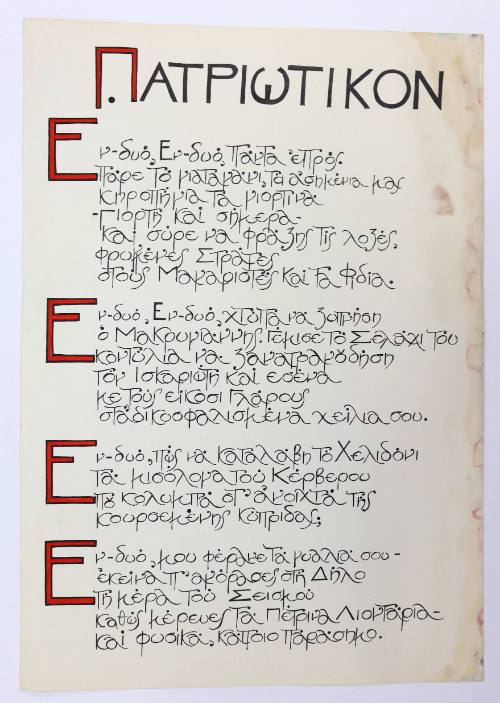 ΠΑΤΡΙΩΤΙΚΟΝ
Εν-δυό, Εν-δυό, πάντα ἐμπρός.
Πάρε τό γιαταγάνι, τά ἀσημένια μας
κηροπήγια τά γιορτινά
-Γιορτή καί σήμερα-
Καί σύρε νά φράξης τίς λοξές,
φρυμένες Στράτες
στούς Μακαριστές καί τά Φίδια.
Εν-δυό, Εν-δυό, χτύπα νά ξυπνήση
ὁ Μακρυγιάννης. Γέμισε τό Σελάχι του
κοντύλια νά ξανατραγουδήση
τόν Ισκαριώτη καί ἐσένα
μέ τούς εἴκοσι Γλάρους
στά δικοσφαλισμένα χείλια σου.
Εν-δυό, πῶς νά καταλάβη τό Χελιδόνι
τά μισόλογα τοῦ Κέρβερου
πού κολυμπᾶ στ' ἀνοιχτά τῆς
κουρσεμένης Κύπριδας;
Εν-δυό, μου φέρανε τά γυαλιά σου-
ἐκεῖνα π' ἀγόρασες στή Δῆλο
τή μέρα τοῦ Σεισμοῦ
καθώς μέρευες τά Πέτρινα Λιοντάρια-
καί φυσικά, κάποιο παράσημο.